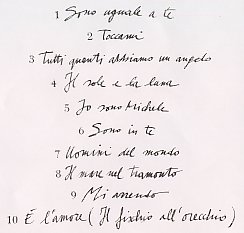 1 Sono uguale a te
2 Toccami
3 Tutti quanti abbiamo un angelo
4 Il sole e la luna
5 Io sono Michele
6 Sono in te
7 Uomini del mondo
8 Il mare nel tramonto
9 Mi arrendo
10 È l'amore (Il fischio all'orecchio)